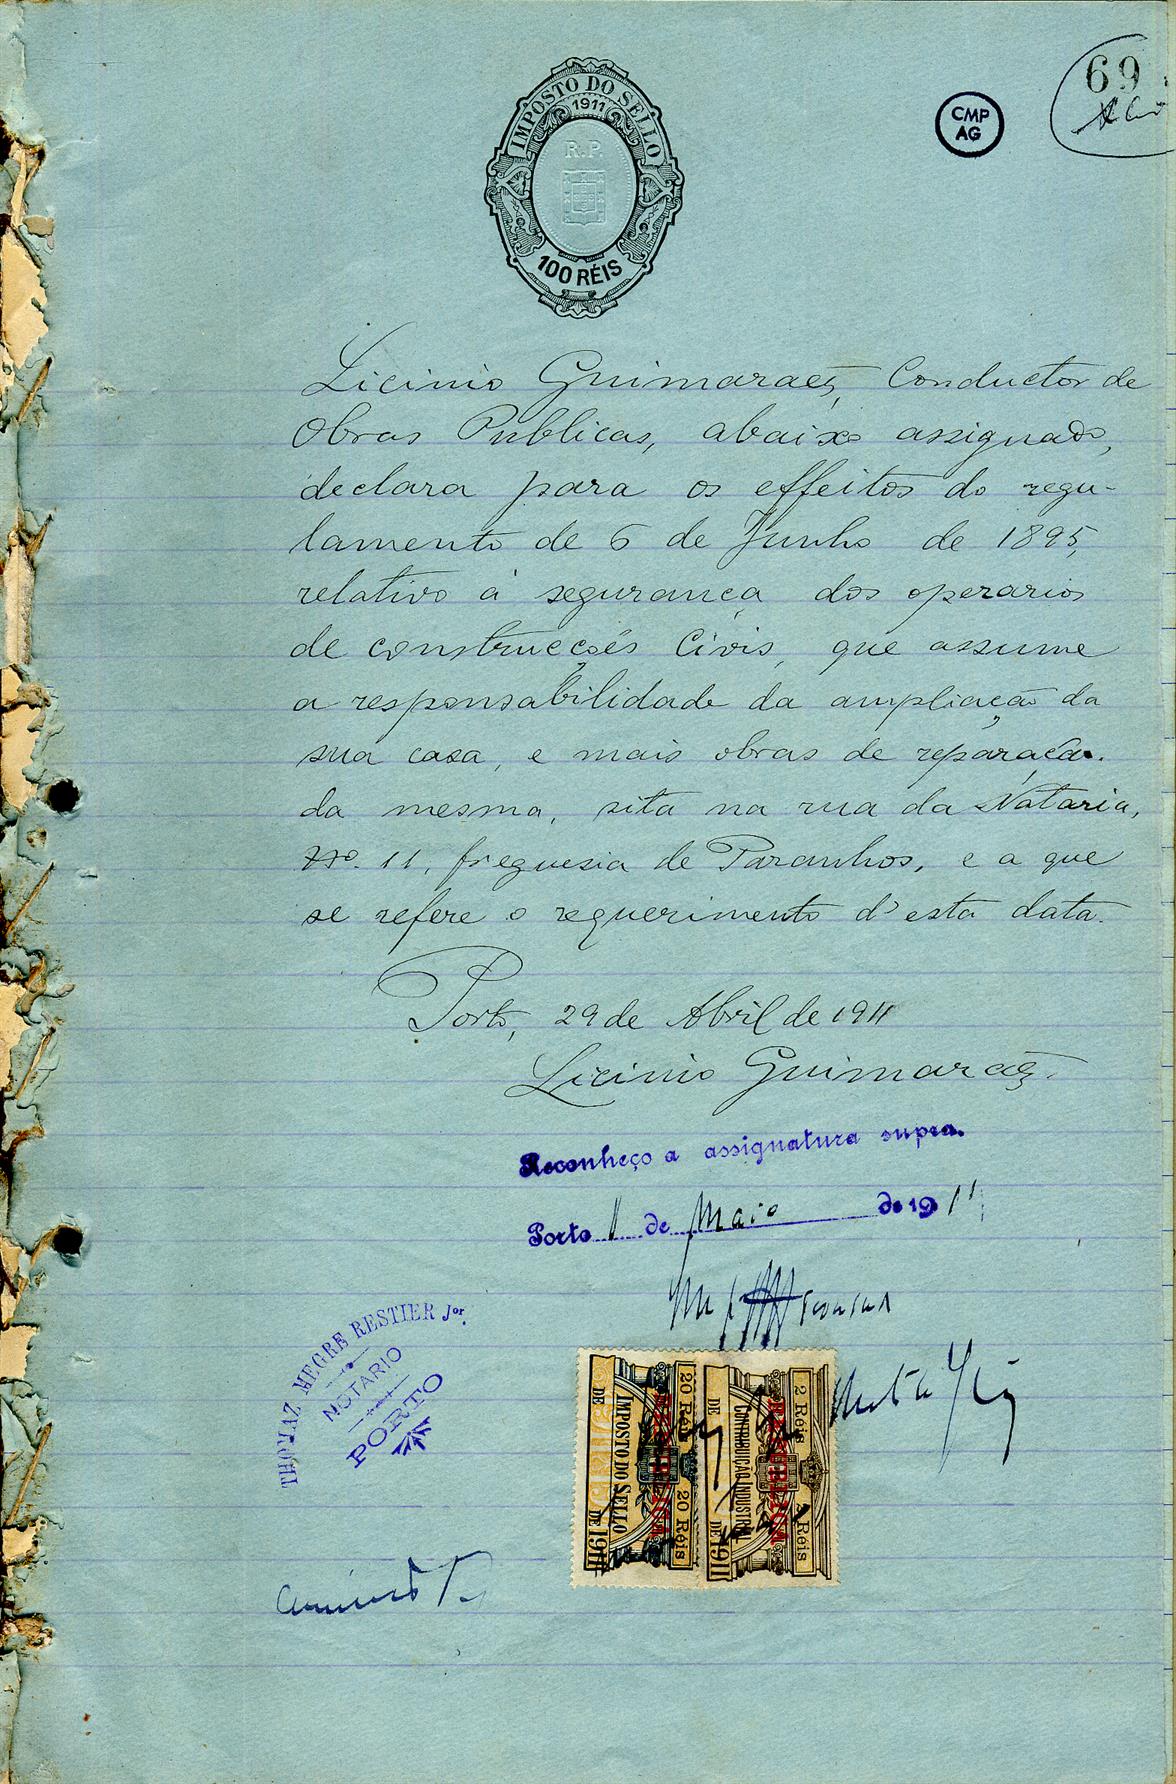 IMPOSTO DO SELLO
1911
R.P.
100 RÉIS
CMP
AG
69
Licinio Guimarães, Conductor de
Obras Publicas, abaixo assignado,
declara para os effeitos do regu-
lamento de 6 de Junho de 1895,
relativo á segurança dos operarios
de construcções Civis, que assume
a responsabilidade da ampliação da
sua casa, e mais obras de reparação
da mesma, sita na rua da Nataria,
Nº. 11, freguesia de Paranhos, e a que
se refere o requerimento d'esta data.
Porto, 29 de Abril de 1911
Licinio Guimarães.
Reconheço a assignatura supra.
Porto 1 de Maio de 1911
THOMAZ MEGRE RESTIER Jor.
NOTARIO
PORTO
2 Réis 2 Réis
REPUBLICA
CONTRIBUIÇÃO INDUSTRIAL
DE DE 1911
20 Réis 20 Réis
REPUBLICA
IMPOSTO DO SELLO
DE DE 1911